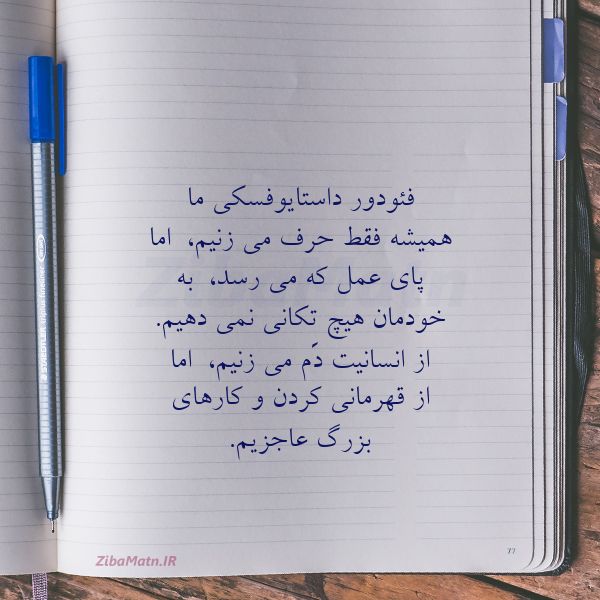 فئودور داستایوفسکی ما
همیشه فقط حرف می زنیم، اما
پای عمل که می رسد، به
خودمان هیچ تکانی نمی دهیم.
از انسانیت دَم می زنیم، اما
از قهرمانی کردن و کارهای
بزرگ عاجزیم.
77
ZibaMatn.IR